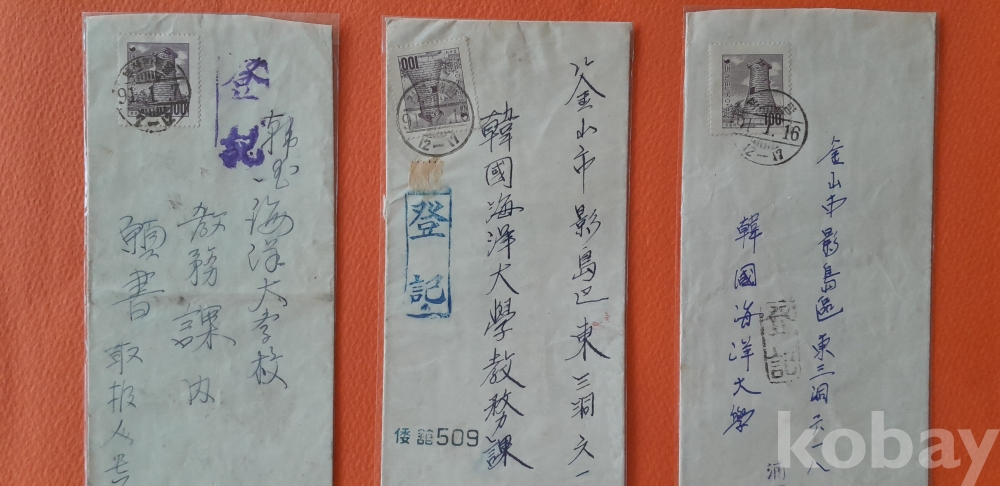 登記
海洋大学校
敎務課 内
願書
100
12-17
登記
釜山市 影島区 東三洞
韓國海洋大學敎務課
倭館509
100
16
12-17
登記
釜山市 影島區 東三洞 六一八
韓國海洋大學
kobay